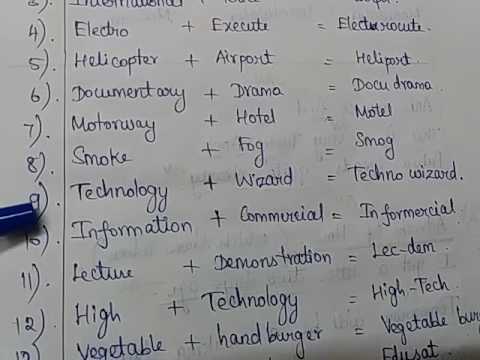 3). International +
4). Electro + Execute = Electrocute.
5). Helicopter + Airport = Heliport.
6). Documentary + Drama = Docu drama.
7). Motorway + Hotel = Motel
8). Smoke + Fog = Smog
9). Technology + Wizard = Techno wizard.
10). Information + Commercial = Informercial.
11). Lecture + Demonstration = Lec-dem
12). High + Technology = High-Tech.
13). Vegetable + handburger = Vegetable